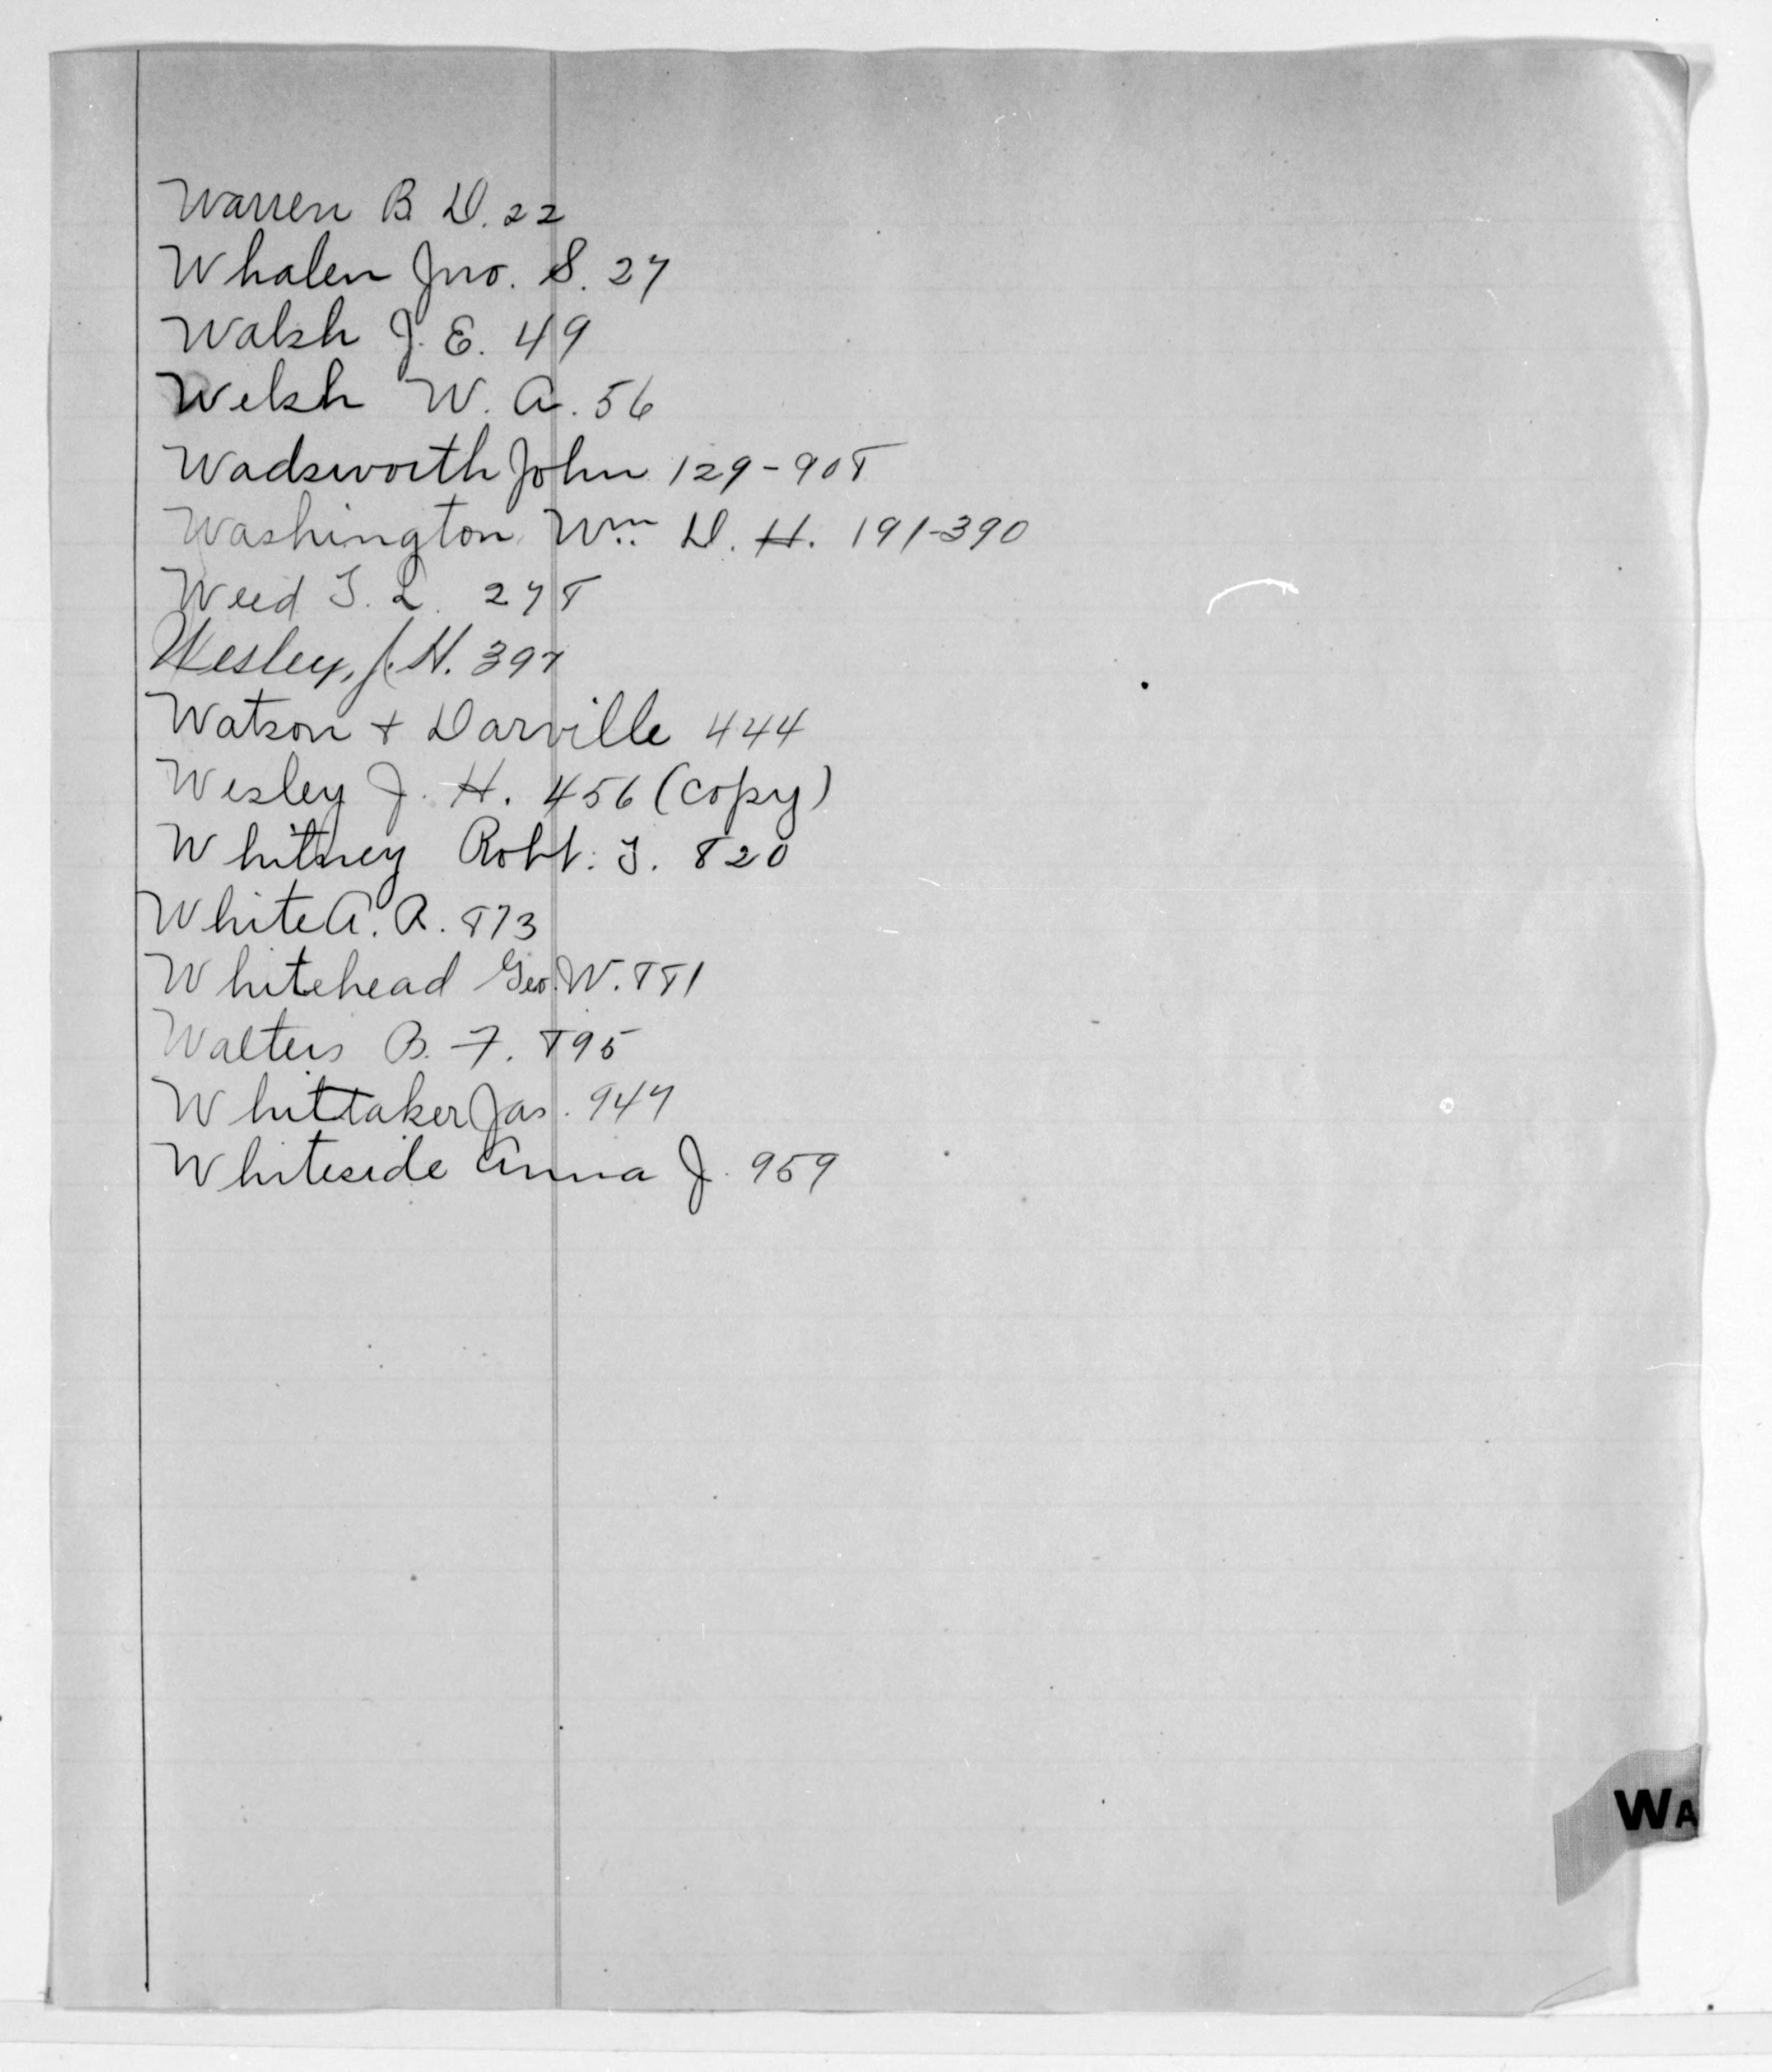 Warren B. D. 22
Whalen Jno. S. 27
Walsh J. E. 49
Welsh W. A. 56
Wadsworth John 129-908
Washington Wm. D. H. 191-390
Weed T. L. 278
Wesley, J. H. 397
Watson + Darville 444
Wesley J. H. 456 (copy)
Whitney Robt. T. 820
White A. R. 873
Whitehead Geo. W. 881
Walters B. F. 895
Whittaker Jas. 947
Whiteside Anna J. 959
WA